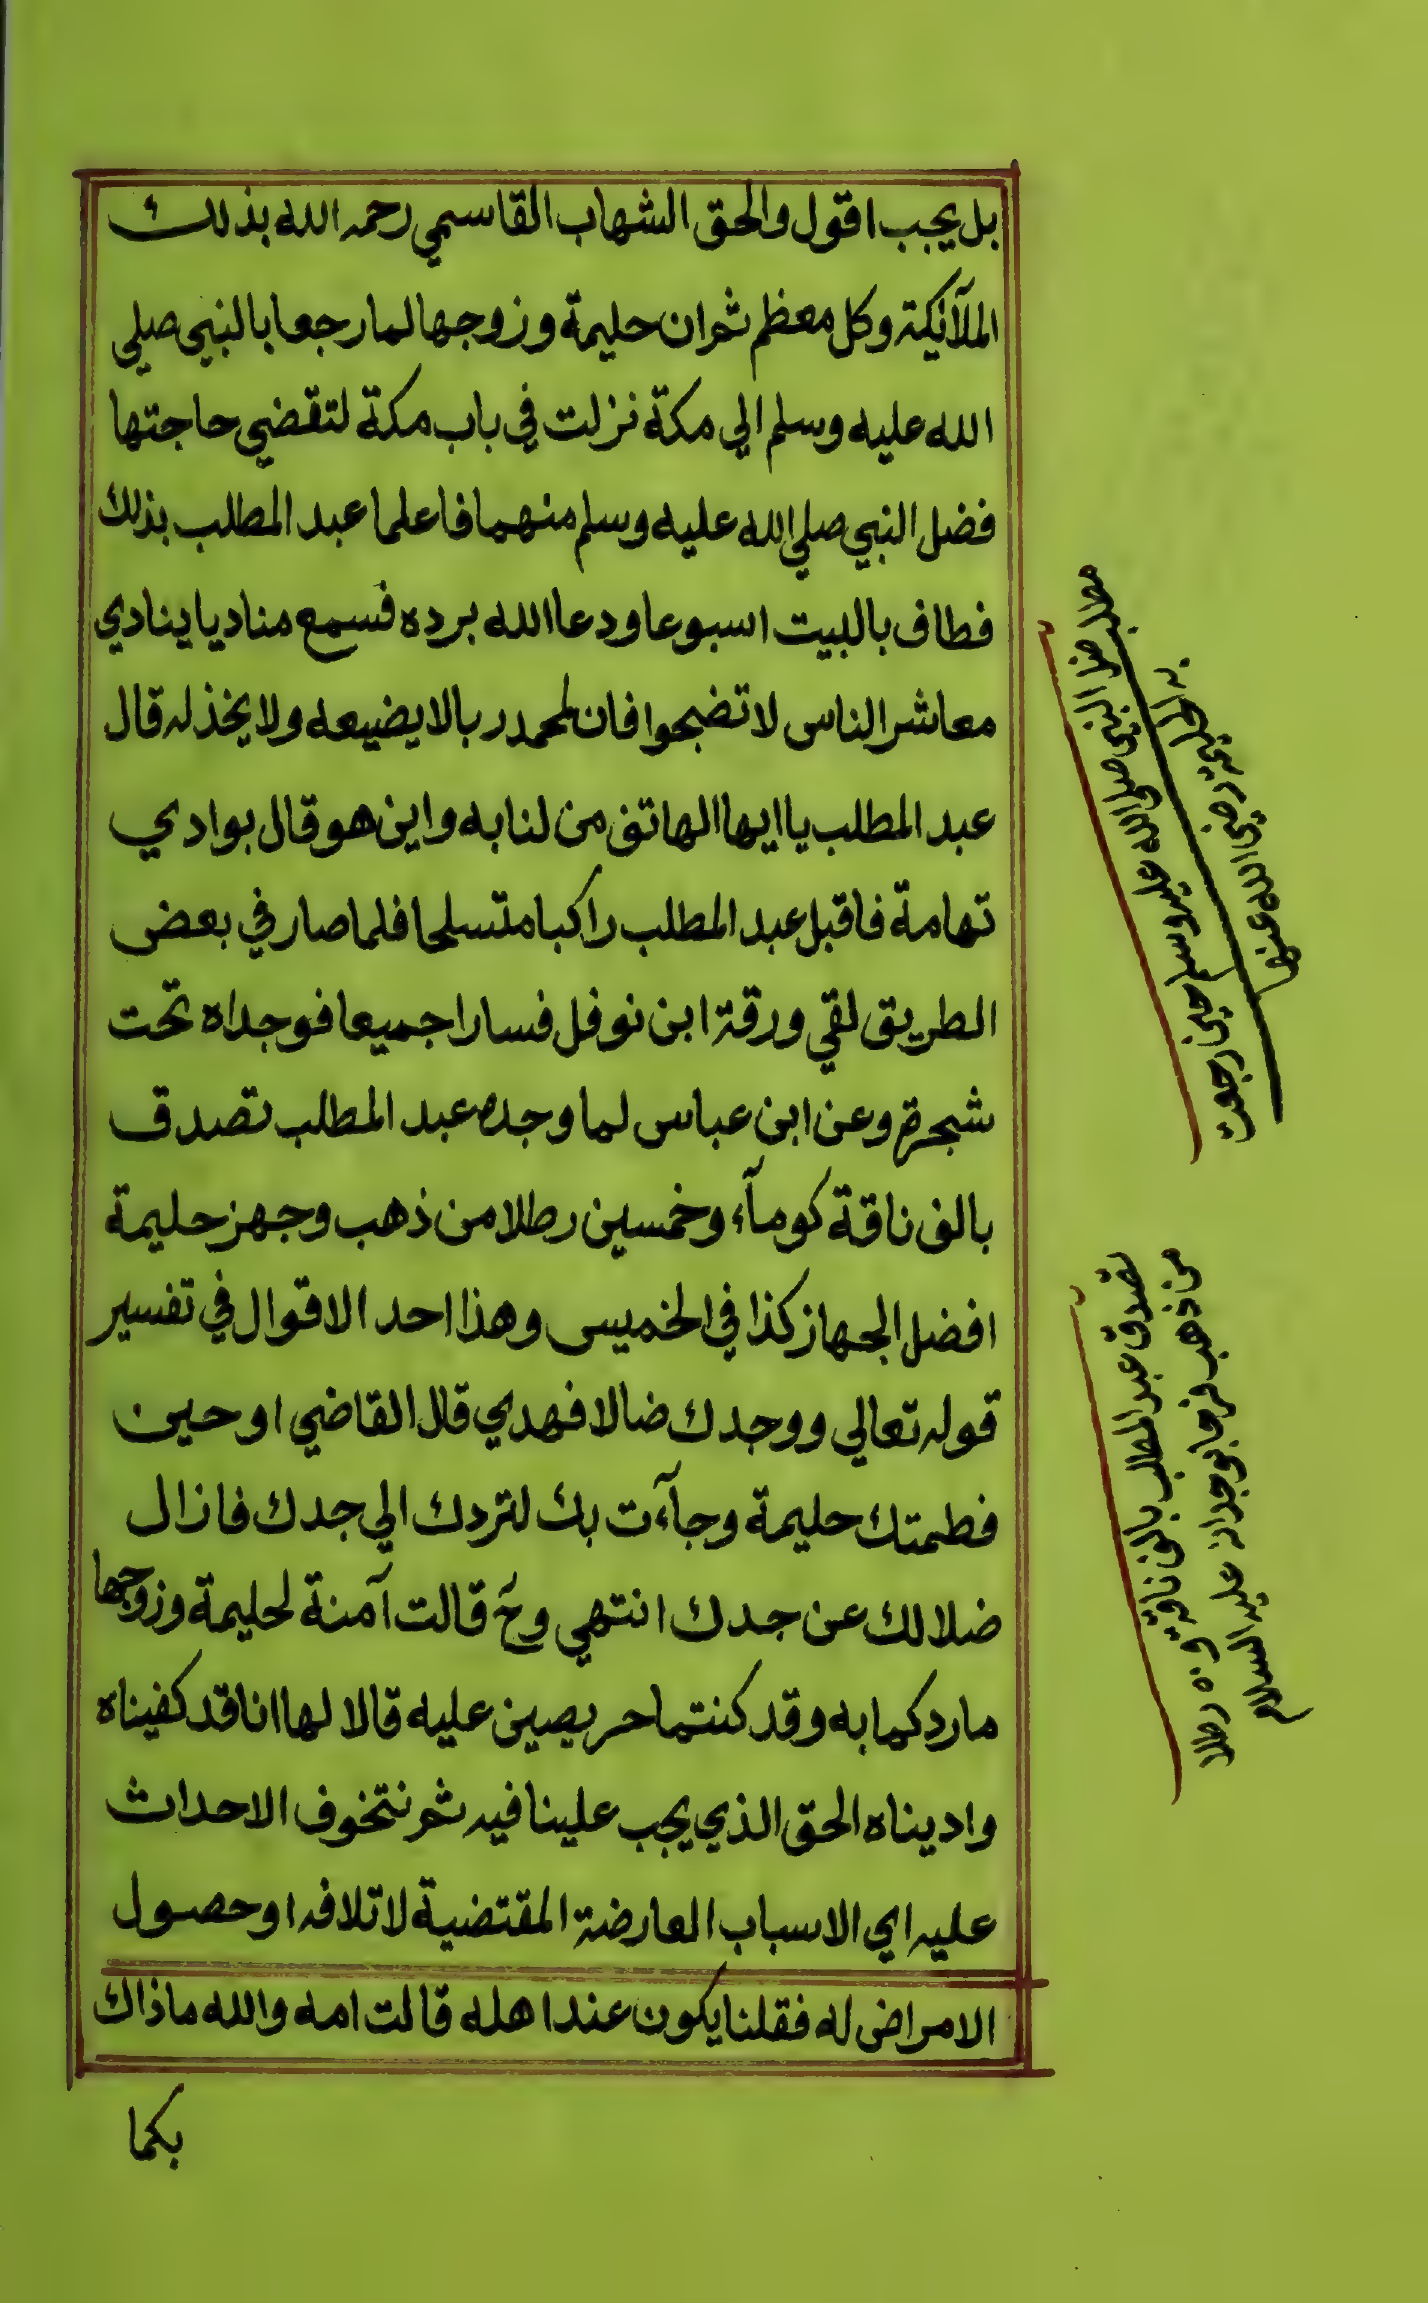 بل يجب اقول والحق الشهاب القاسمي رحمه الله بذلك
الملآئكة وكل معظم ثم ان حليمة وزوجها لما رجعا بالنبي صلي
الله عليه وسلم الي مكة نزلت في باب مكة لتقضي حاجتها
فضل النبي صلي الله عليه وسلم منهما فاعلما عبد المطلب بذلك
فطاف بالبيت اسبوعا ودعا الله برده فسمع مناديا ينادي
معاشر الناس لا تضجوا فان لمحمد ربا لا يضيعه ولا يخذله قال
عبد المطلب يا ايها الهاتف من لنا به واين هو قال بوادي
تهامة فاقبل عبد المطلب راكبا متسلحا فلما صار في بعض
الطريق لقي ورقة ابن نوفل فسارا جميعا فوجداه تحت
شجرة وعن ابن عباس لما وجده عبد المطلب تصدق
بالف ناقة كومآء وخمسين رطلا من ذهب وجهز حليمة
افضل الجهاز كذا في الخميس وهذا احد الاقوال في تفسير
قوله تعالي ووجدك ضالا فهدي قال القاضي او حين
فطمتك حليمة وجآءت بك لتردك الي جدك فازال
ضلالك عن جدك انتهي وح قالت آمنة لحليمة وزوجها
ما ردكما به وقد كنتما حريصين عليه قالا لها انا قد كفيناه
واديناه الحق الذي يجب علينا فيه ثم نتخوف الاحداث
عليه اي الاسباب العارضة المقتضية لاتلافه او حصول
الامراض له فقلنا يكون عند اهله قالت امه والله ماذاك
بكما
مطلب ضل النبي صلي الله عليه وسلم حين رجعت
به حليمة رضي الله عنها
تصدق عبد المطلب بالف ناقة و٥٠ رطلا
من ذهب فرحا بوجدانه عليه السلام